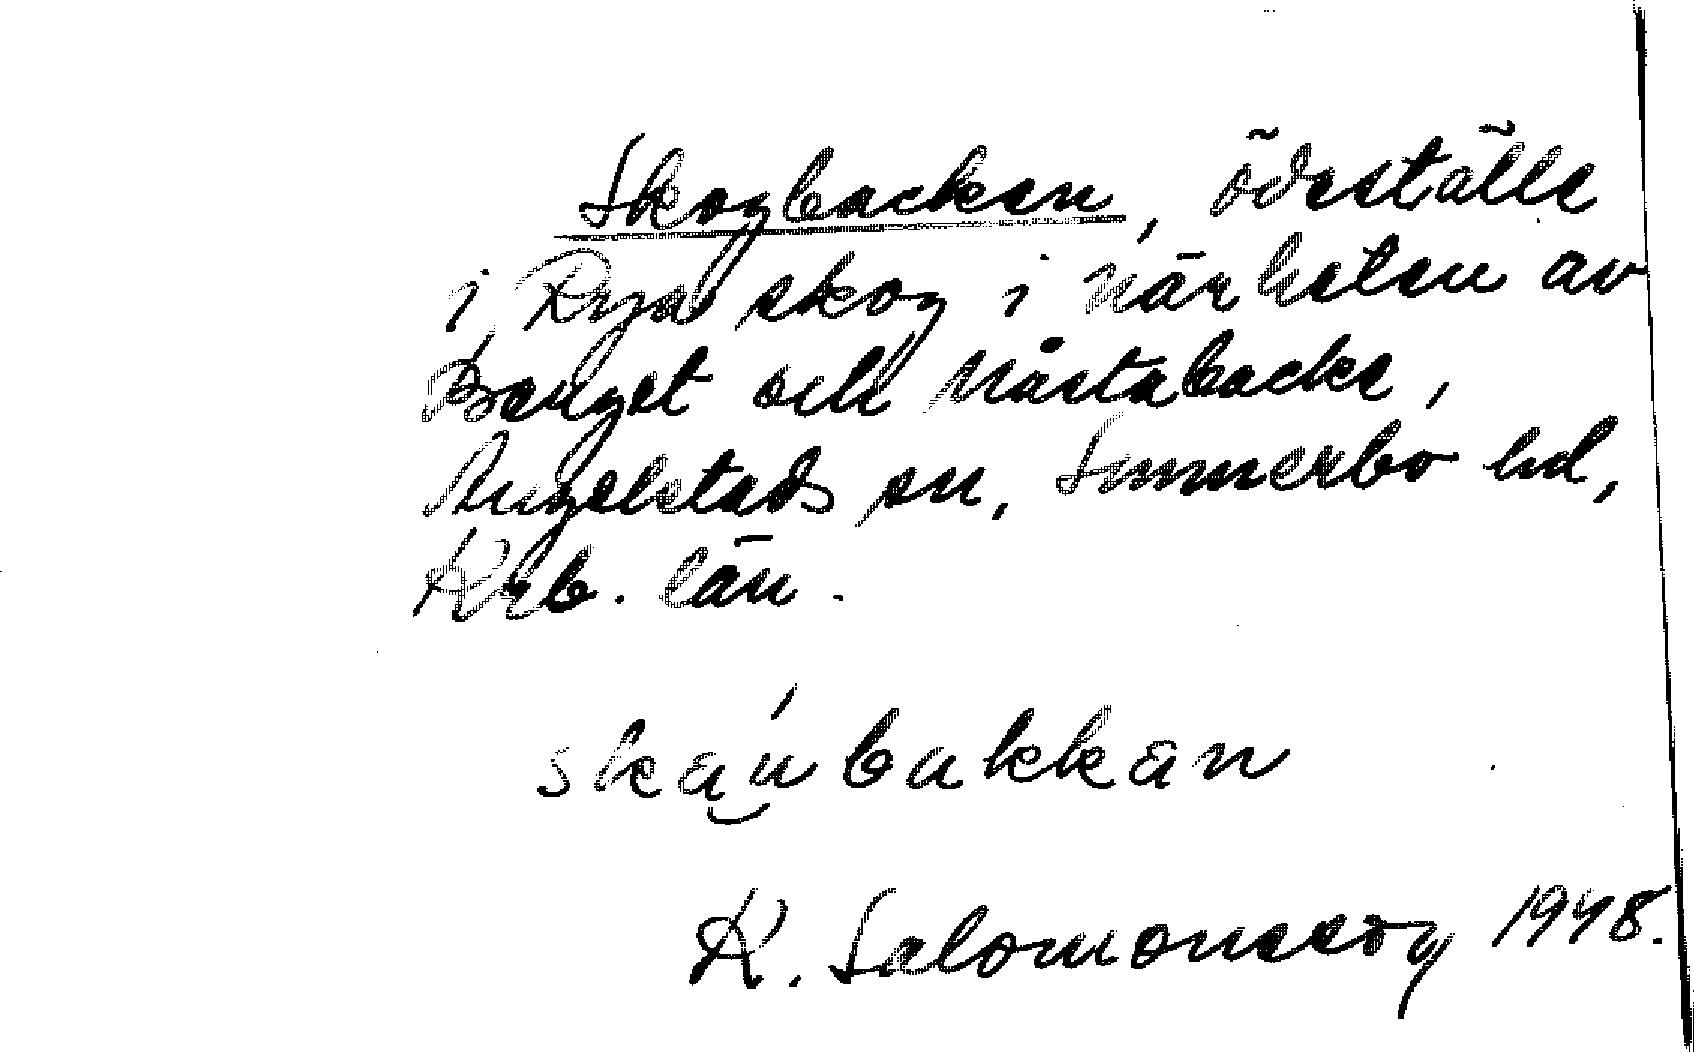 Skogbacken, ödeställe
i Rya skog i närheten av
Berget och Mårtabacke,
Angelstads sn, Sunnerbo hd,
Krb. län.
skäu̯bakkän
K. Salomonsson 1948.